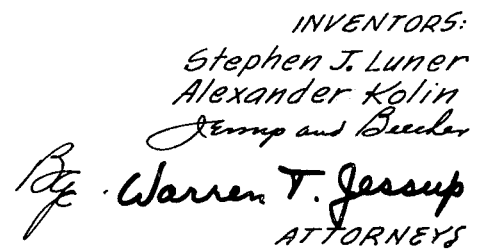 INVENTORS:
Stephen J. Luner
Alexander Kolin
Jessup and Beecher
By Warren T. Jessup
ATTORNEYS